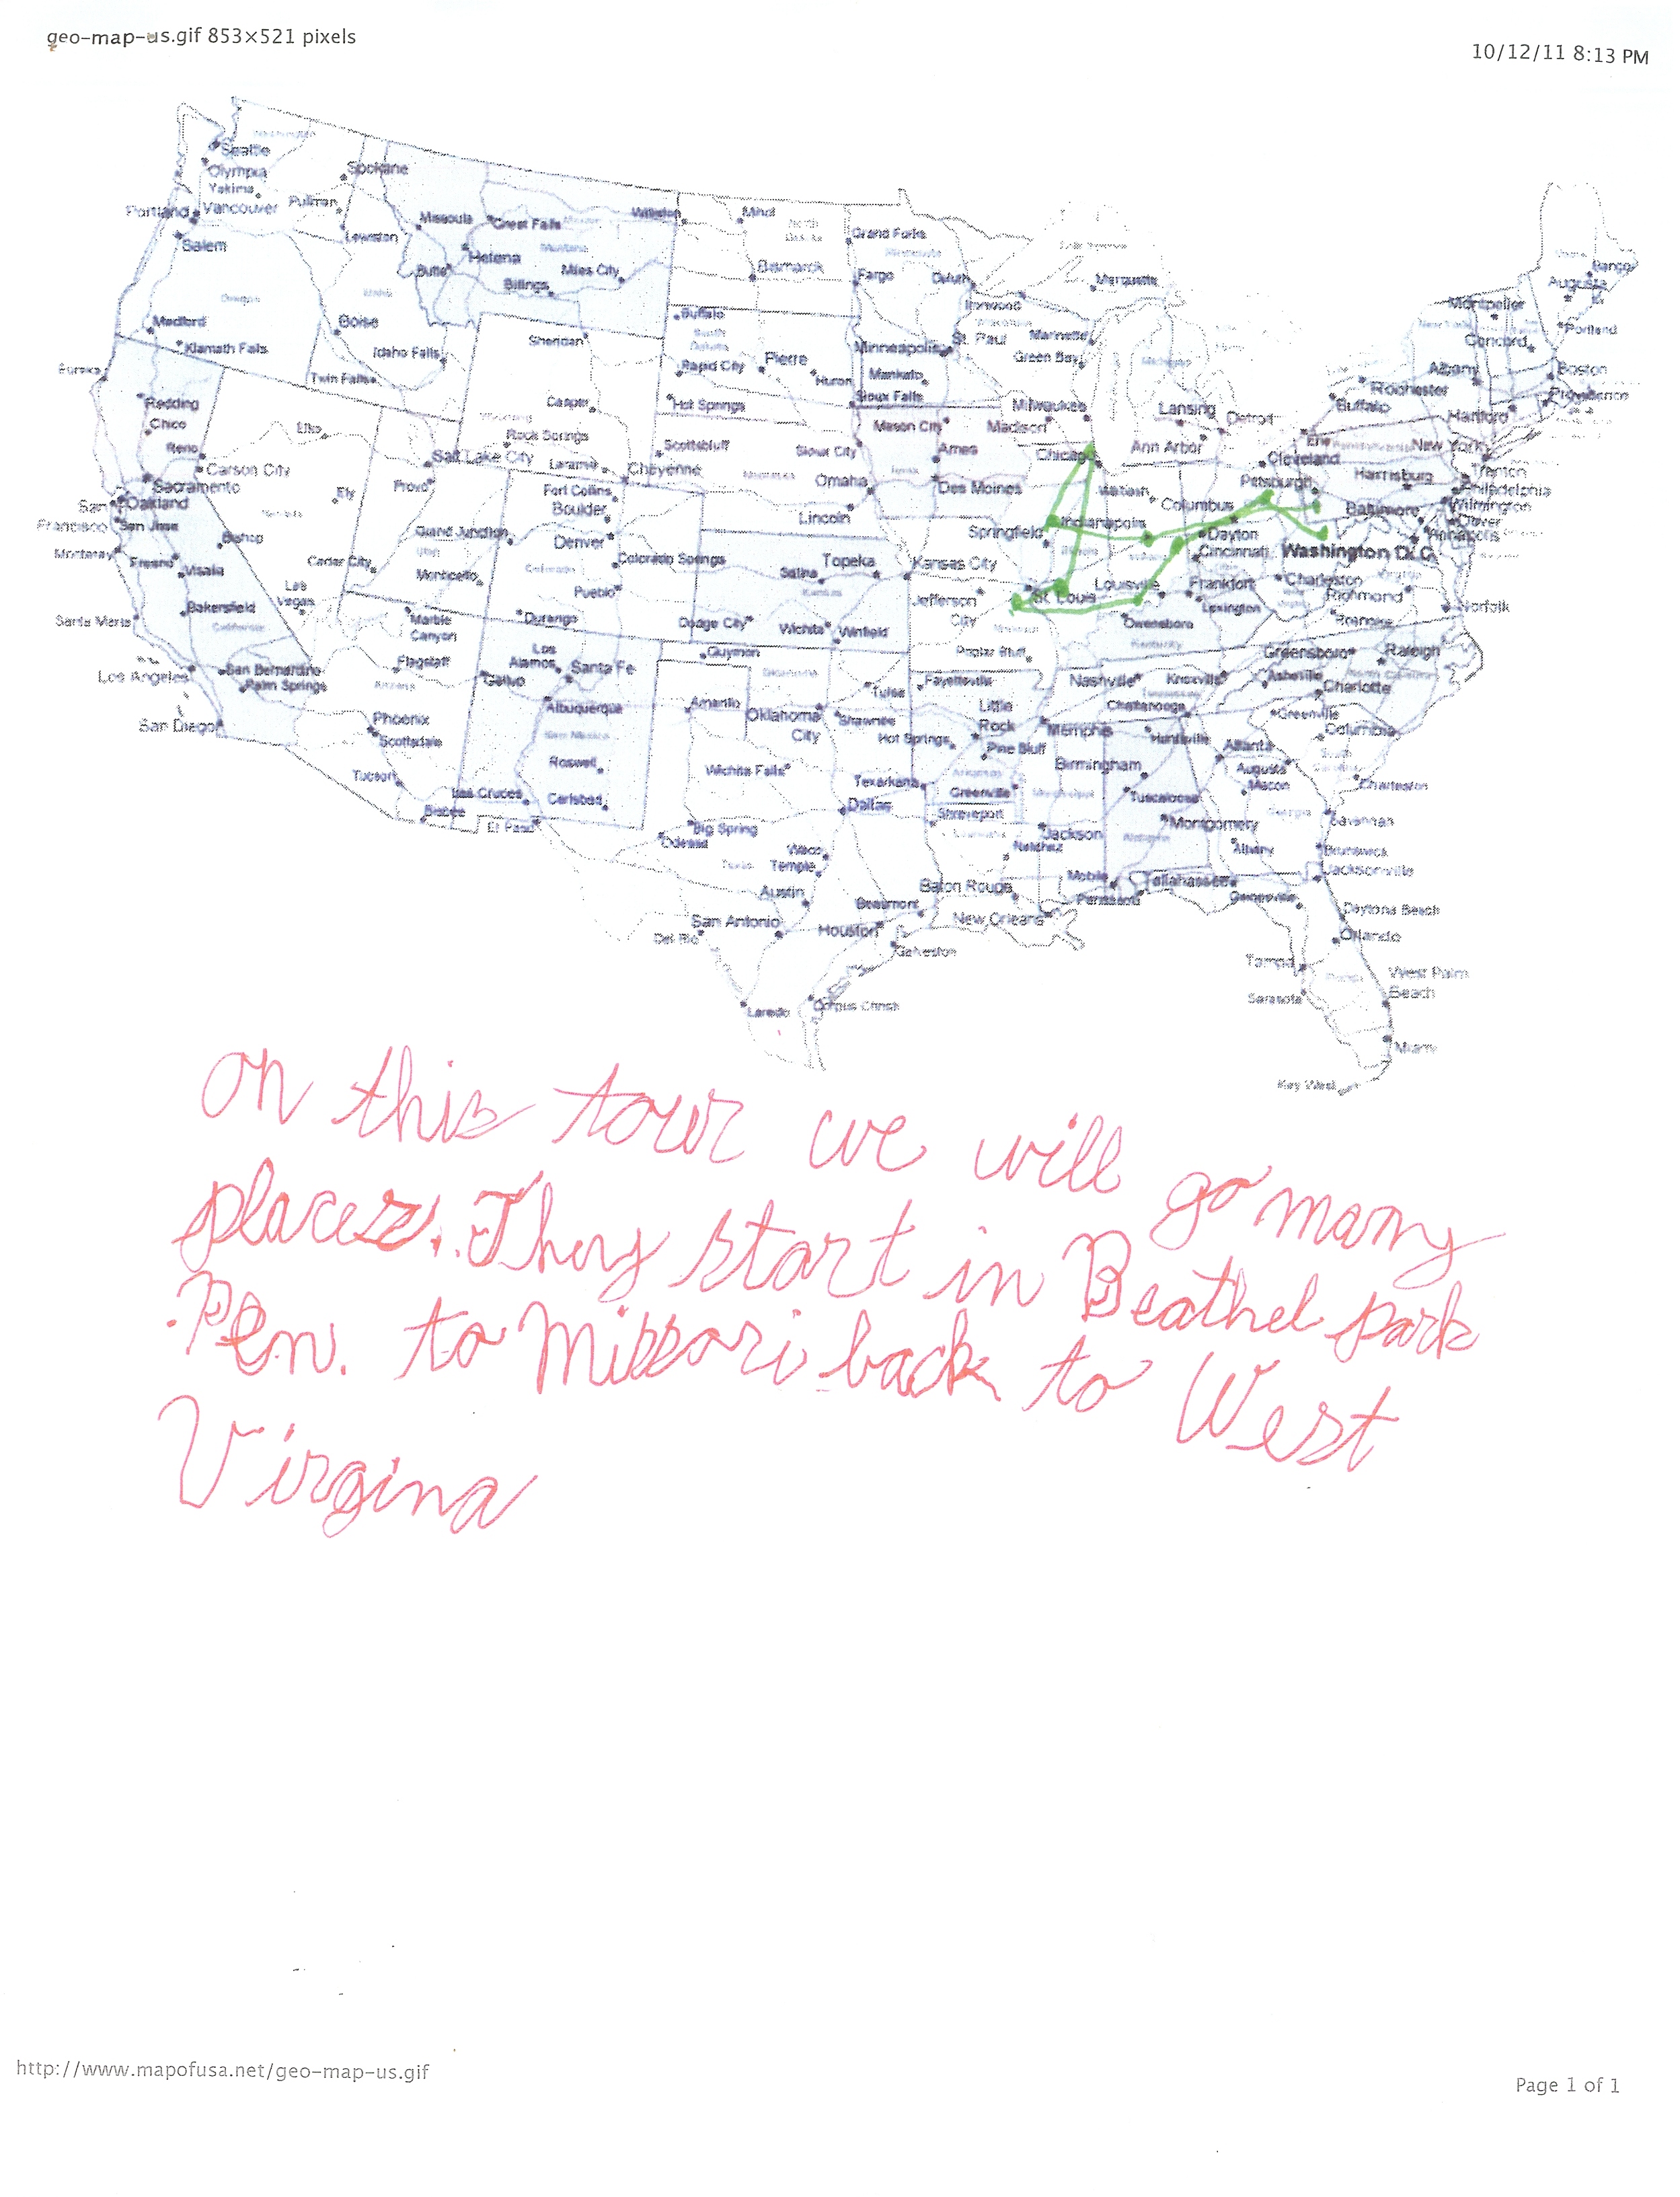 geo-map-us.gif 853×521 pixels
10/12/11 8:13 PM
Seattle
Olympia
Yakima
Spokane
Portland
Vancouver
Pullman
Salem
Lewiston
Missoula
Great Falls
Williston
Minot
Grand Forks
Helena
Butte
Miles City
Billings
Bismarck
Fargo
Duluth
Marquette
Ironwood
Montpelier
Augusta
Bangor
Portland
Concord
Medford
Klamath Falls
Boise
Idaho Falls
Twin Falls
Sheridan
Buffalo
Rapid City
Pierre
Huron
Minneapolis
St. Paul
Mankato
Marinette
Green Bay
Albany
Boston
Rochester
Buffalo
Providence
Hartford
Eureka
Redding
Chico
Reno
Carson City
Elko
Casper
Hot Springs
Sioux Falls
Mason City
Milwaukee
Madison
Lansing
Detroit
Ann Arbor
Erie
Cleveland
New York
Rock Springs
Salt Lake City
Laramie
Cheyenne
Scottsbluff
Sioux City
Ames
Chicago
Pittsburgh
Harrisburg
Trenton
Philadelphia
Wilmington
Sacramento
Oakland
San
Francisco
San Jose
Ely
Provo
Fort Collins
Boulder
Omaha
Des Moines
Wabash
Columbus
Baltimore
Dover
Annapolis
Monterey
Fresno
Visalia
Bishop
Cedar City
Grand Junction
Denver
Colorado Springs
Lincoln
Springfield
Indianapolis
Dayton
Cincinnati
Washington D.C.
Monticello
Pueblo
Salina
Topeka
Kansas City
Jefferson
City
St. Louis
Louisville
Frankfort
Charleston
Richmond
Norfolk
Santa Maria
Bakersfield
Las
Vegas
Marble
Canyon
Durango
Dodge City
Wichita
Winfield
Owensboro
Lexington
Roanoke
Los Angeles
San Bernardino
Palm Springs
Flagstaff
Gallup
Los
Alamos
Santa Fe
Guymon
Poplar Bluff
Fayetteville
Nashville
Knoxville
Greensboro
Raleigh
Asheville
Charlotte
San Diego
Phoenix
Scottsdale
Albuquerque
Amarillo
Oklahoma
City
Tulsa
Shawnee
Little
Rock
Hot Springs
Pine Bluff
Memphis
Chattanooga
Huntsville
Greenville
Columbia
Atlanta
Tucson
Bisbee
Las Cruces
El Paso
Roswell
Carlsbad
Wichita Falls
Texarkana
Dallas
Greenville
Shreveport
Birmingham
Tuscaloosa
Augusta
Macon
Charleston
Savannah
Big Spring
Odessa
Waco
Temple
Jackson
Natchez
Montgomery
Albany
Brunswick
Jacksonville
Austin
San Antonio
Del Rio
Beaumont
Houston
Galveston
Baton Rouge
New Orleans
Mobile
Pensacola
Tallahassee
Gainesville
Daytona Beach
Orlando
Tampa
Sarasota
West Palm
Beach
Miami
Key West
Laredo
Corpus Christi
On this tour we will go many
places. They start in Beathel park
Pen. to Missori back to West
Virgina
http://www.mapofusa.net/geo-map-us.gif
Page 1 of 1